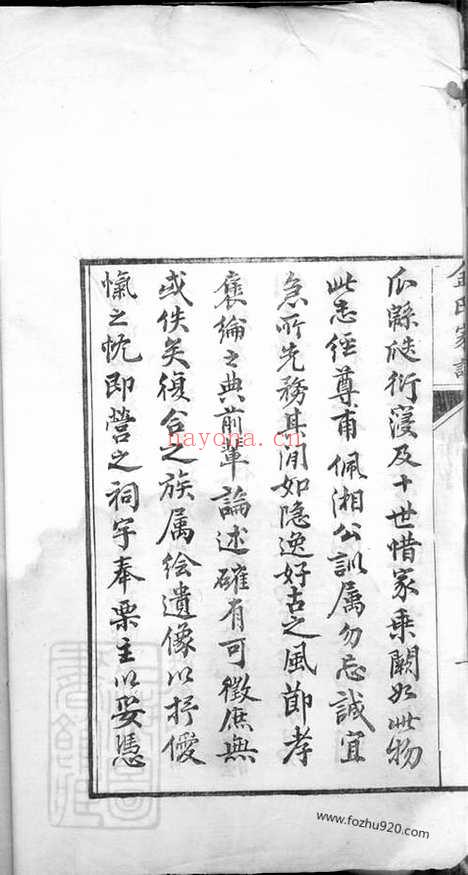 瓜緜陡衍寖及十世惜家乗闕如此物
此志經尊甫佩湘公訓属勿忘誠宜
急所先務其间如隐逸好古之風節孝
褒綸之典前軰論述確有可徵庶無
或佚矣復合之族属绘遺像以抒僾
愾之忱即營之祠宇奉栗主以妥憑
金氏家譜
nayona.cn
www.fozhu920.com